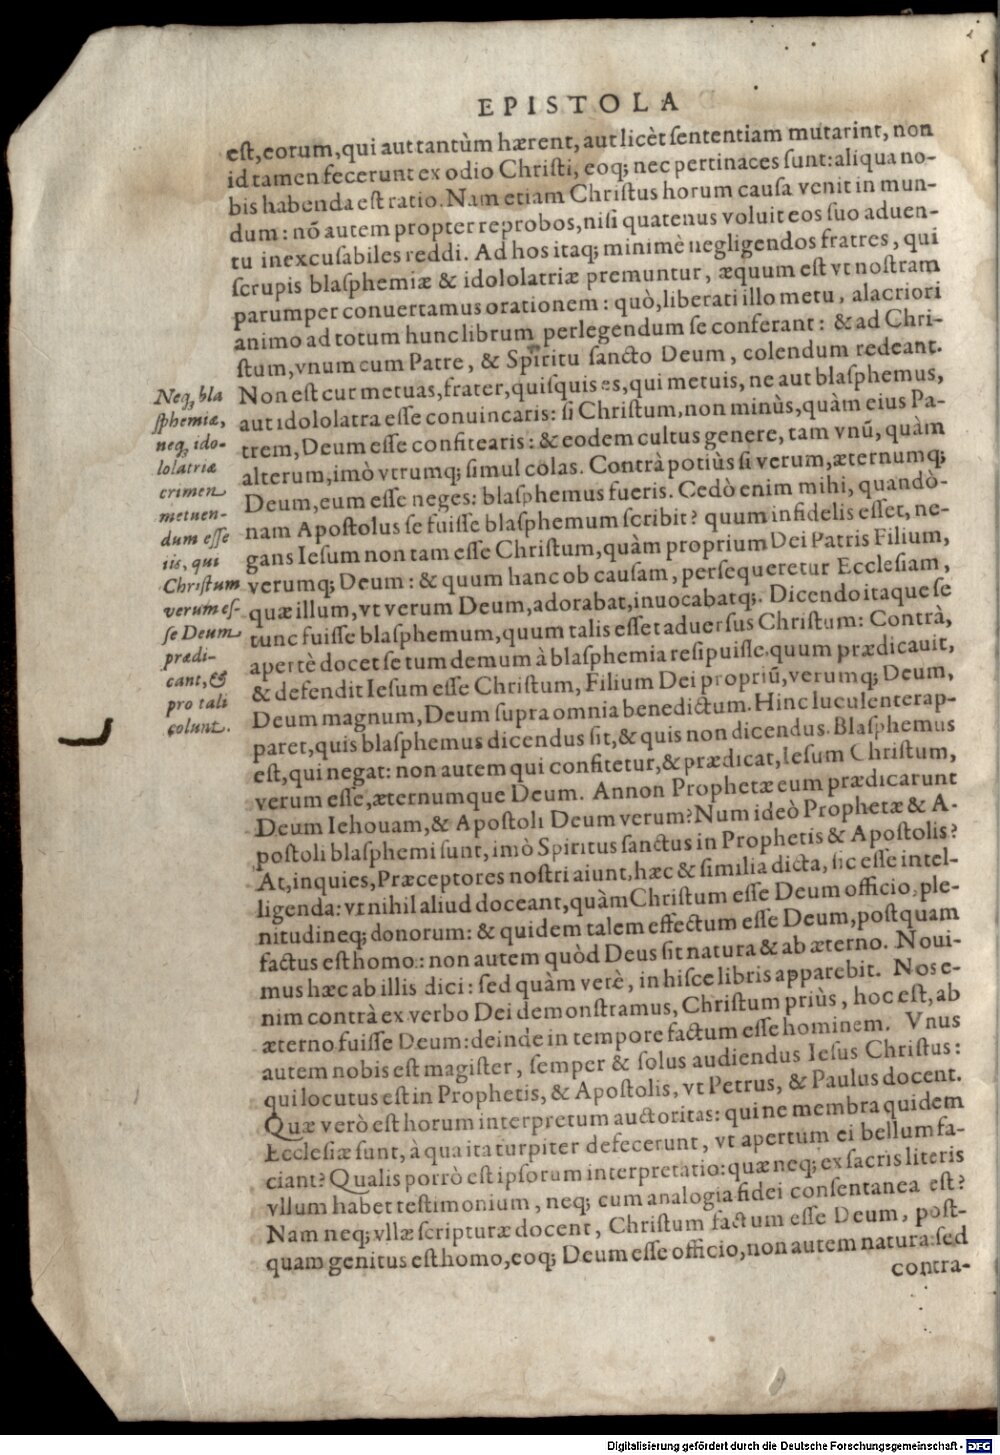 EPISTOLA
est, eorum, qui aut tantùm hærent, aut licèt sententiam mutarint, non
id tamen fecerunt ex odio Christi, eoq; nec pertinaces sunt: aliqua no-
bis habenda est ratio. Nam etiam Christus horum causa venit in mun-
dum: nõ autem propter reprobos, nisi quatenus voluit eos suo aduen-
tu inexcusabiles reddi. Ad hos itaq; minimè negligendos fratres, qui
scrupis blasphemiæ & idololatriæ premuntur, æquum est vt nostram
parumper conuertamus orationem: quò, liberati illo metu, alacriori
animo ad totum hunc librum perlegendum se conferant: & ad Chri-
stum, vnum cum Patre, & Spiritu sancto Deum, colendum redeant.
Non est cur metuas, frater, quisquis es, qui metuis, ne aut blasphemus,
aut idololatra esse conuincaris: si Christum, non minùs, quàm eius Pa-
trem, Deum esse confitearis: & eodem cultus genere, tam vnũ, quàm
alterum, imò vtrumq; simul colas. Contrà potiùs si verum, æternumq;
Deum, eum esse neges: blasphemus fueris. Cedò enim mihi, quandò-
nam Apostolus se fuisse blasphemum scribit? quum infidelis esset, ne-
gans Iesum non tam esse Christum, quàm proprium Dei Patris Filium,
verumq; Deum: & quum hanc ob causam, persequeretur Ecclesiam,
quæ illum, vt verum Deum, adorabat, inuocabatq;. Dicendo itaque se
tunc fuisse blasphemum, quum talis esset aduersus Christum: Contrà,
apertè docet se tum demum à blasphemia resipuisse, quum prædicauit,
& defendit Iesum esse Christum, Filium Dei propriũ, verumq; Deum,
Deum magnum, Deum supra omnia benedictum. Hinc luculenter ap-
paret, quis blasphemus dicendus sit, & quis non dicendus. Blasphemus
est, qui negat: non autem qui confitetur, & prædicat, Iesum Christum,
verum esse, æternumque Deum. Annon Prophetæ eum prædicarunt
Deum Iehouam, & Apostoli Deum verum? Num ideò Prophetæ & A-
postoli blasphemi sunt, imò Spiritus sanctus in Prophetis & Apostolis?
At, inquies, Præceptores nostri aiunt, hæc & similia dicta, sic esse intel-
ligenda: vt nihil aliud doceant, quàm Christum esse Deum officio, ple-
nitudineq; donorum: & quidem talem effectum esse Deum, postquam
factus est homo: non autem quòd Deus sit natura & ab æterno. Noui-
mus hæc ab illis dici: sed quàm verè, in hisce libris apparebit. Nos e-
nim contrà ex verbo Dei demonstramus, Christum priùs, hoc est, ab
æterno fuisse Deum: deinde in tempore factum esse hominem. Vnus
autem nobis est magister, semper & solus audiendus Iesus Christus:
qui locutus est in Prophetis, & Apostolis, vt Petrus, & Paulus docent.
Quæ verò est horum interpretum auctoritas: qui ne membra quidem
Ecclesiæ sunt, à qua ita turpiter defecerunt, vt apertum ei bellum fa-
ciant? Qualis porrò est ipsorum interpretatio: quæ neq; ex sacris literis
vllum habet testimonium, neq; cum analogia fidei consentanea est?
Nam neq; vllæ scripturæ docent, Christum factum esse Deum, post-
quam genitus est homo, eoq; Deum esse officio, non autem natura: sed
contra-
Neq; bla
sphemiæ,
neq; ido-
lolatriæ
crimen
metuen-
dum esse
iis, qui
Christum
verum es-
se Deum
prædi-
cant, &
pro tali
colunt.
Digitalisierung gefördert durch die Deutsche Forschungsgemeinschaft - DFG